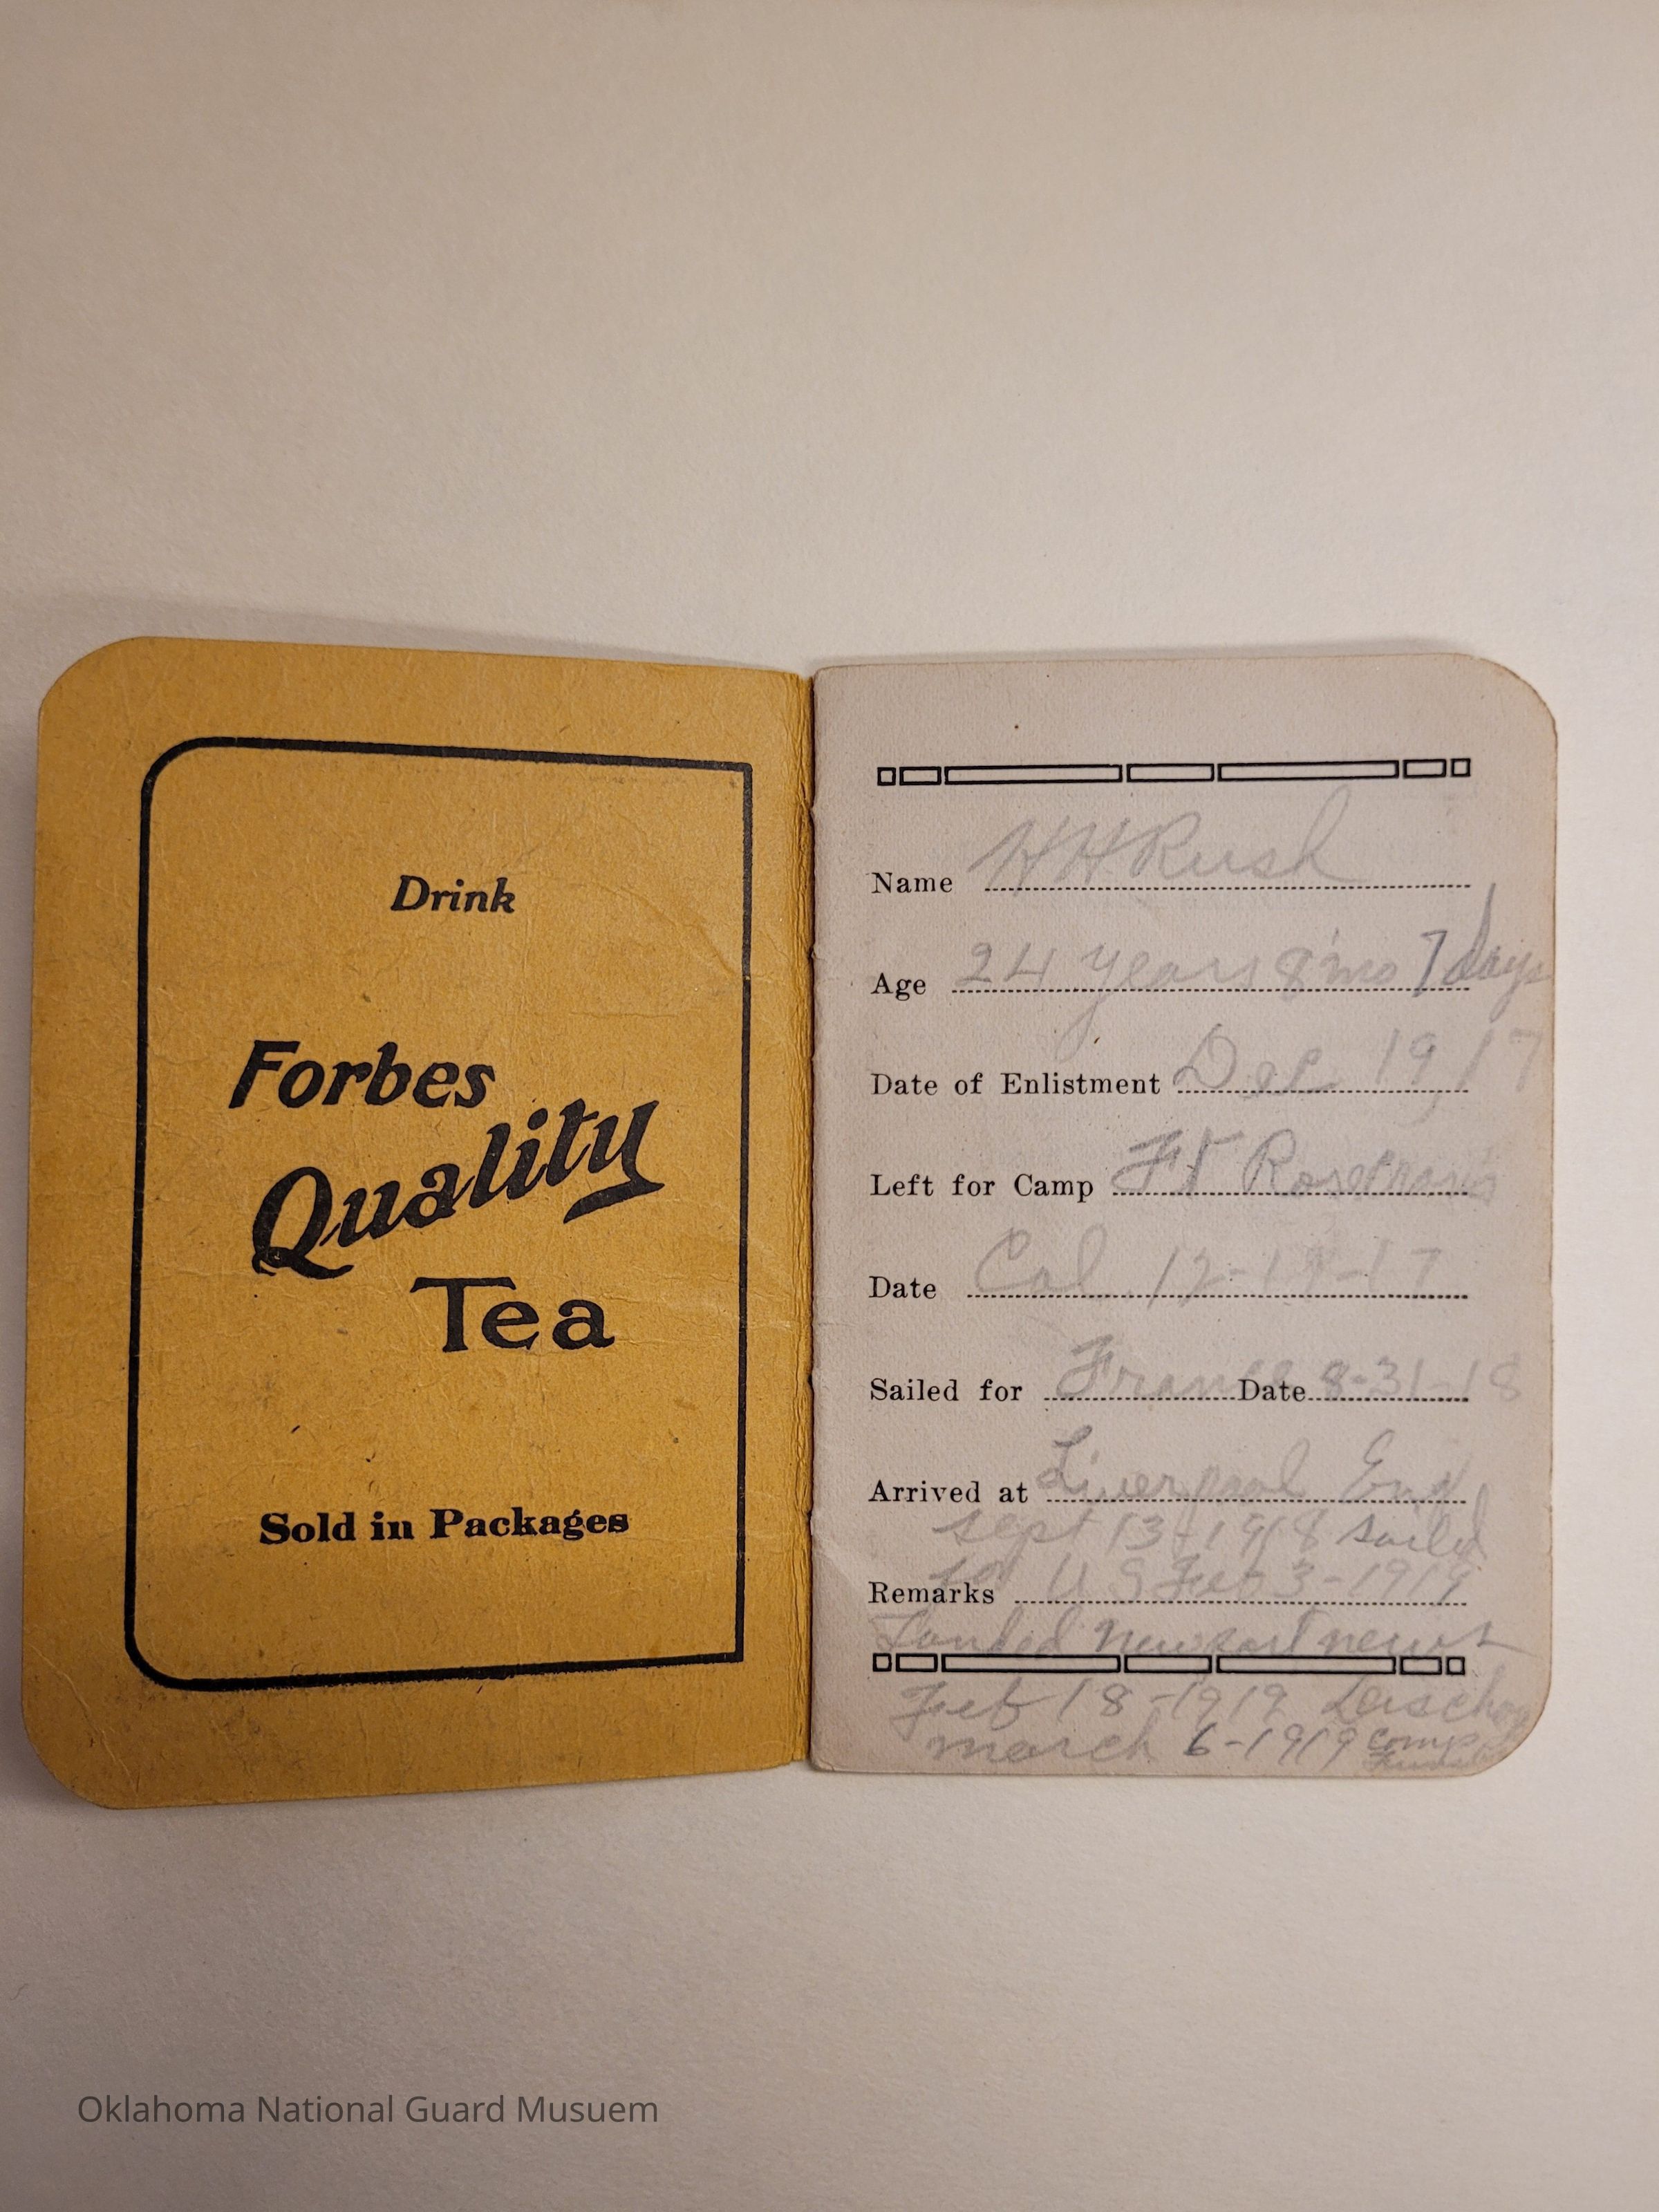 Drink
Forbes
Quality
Tea
Sold in Packages
Name HHRush
Age 24 years 8 mo 7 days
Date of Enlistment Dec 1917
Left for Camp Ft Rosetrans
Date Cal 12-19-17
Sailed for France Date 8-31-18
Arrived at Liverpool Eng
Sept 13-1918 Sailed
for U S Feb 3-1919
Remarks
Landed Newport news
Feb 18-1919
march 6-1919 Camp
Oklahoma National Guard Musuem